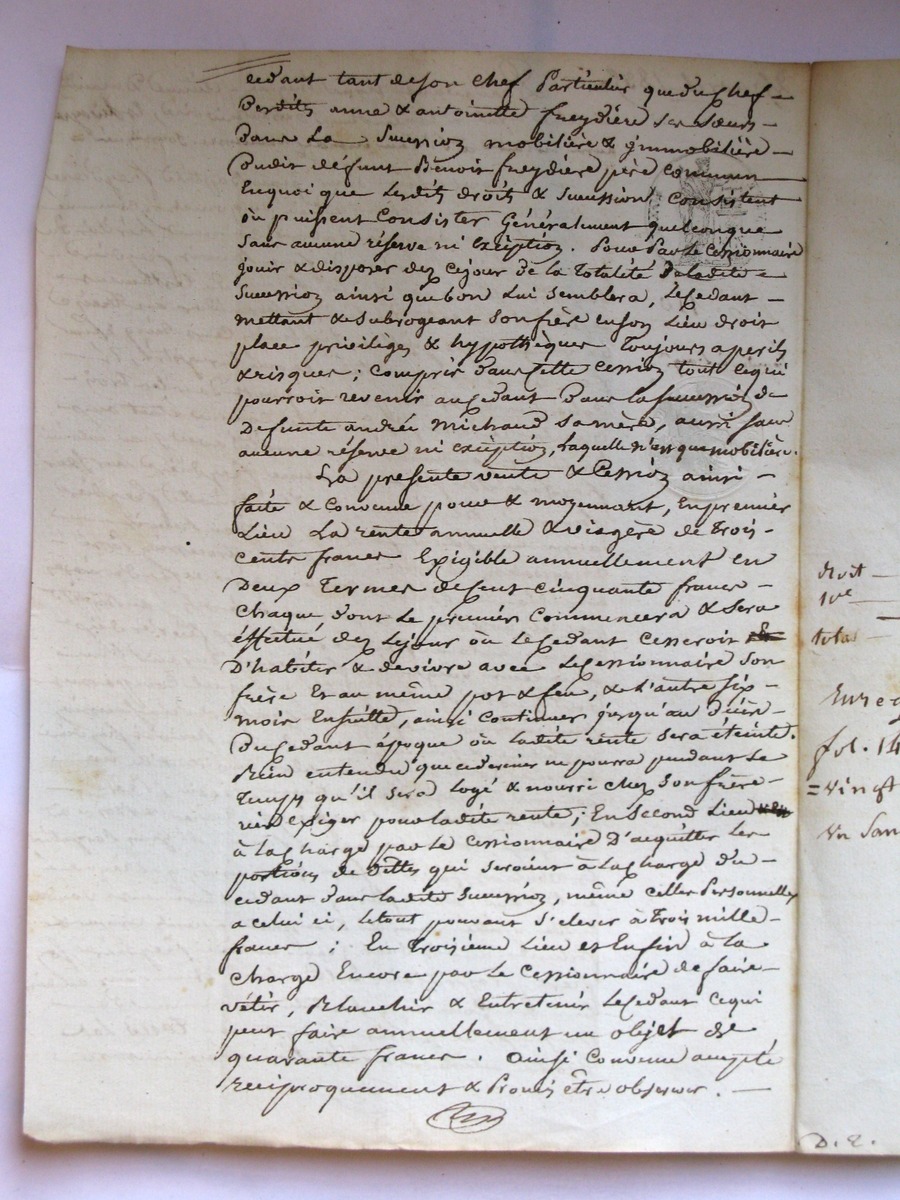 cédant tant de son chef Particulier que du chef
Desdits anne & antoinette freydière ses sœurs
Dans La Succession mobilière & jmmobilière
Dudit défunt Benoit freydière père commun
Enquoi que Lesdits droits & succession Consistent
où puissent Consister Généralement quelconque
Sans aucune réserve ni Exception. Pour Par Le Cessionnaire
jouir & disposer dez cejour de la Totalité Deladite
Succession ainsi que bon Lui semblera, Le Cedant
mettant & subrogeant son frère en son Lieu droit
place privilèges & hypothèques Toujours a perils
& risques ; compris dans cette cession tout cequi
pourroit revenir au Cedant Dans la succession de
Defunte andrée michaud sa mère, aussi sans
aucune réserve ni exception, Laquelle n'est que mobilière.
La presente vente & Cession ainsi
faite & Convenue pour & moyennant, En premier
Lieu La rente annuelle & viagère de Trois
cents francs Exigible annuellement en
Deux Termes de Cent cinquante francs
chaque dont Le premier Commencera & sera
éffectué dez Lejour où Le Cedant Cesseroit
D'habiter & de vivre avec Le Cessionnaire Son
frère Et au même pot & feu, & L'autre six
mois Ensuitte, ainsi Continuer jusqu'au Décès
Du Cedant époque où Ladite rente sera éteinte.
Bien entendu que ce dernier ne pourra pendant Le
Temps qu'il sera Logé & nourri chez son frère
rien exiger pour Ladite rente ; En Second Lieu
à La Charge par le Cessionnaire D'acquitter Les
portions de Dettes qui seroient à La charge du
cédant dans Ladite Succession, même Celles Personnelles
a celui ci, Le tout pouvant S'élever à Trois mille
francs ; En Troisieme Lieu et Enfin à La
charge Encore par le Cessionnaire de faire
vétir, Blanchir & Entretenir Le Cedant Cequi
peut faire annuellement un objet de
quarante francs. ainsi Convenu accepté
reciproquement & Promis être observer.
droit
10e
total
Enreg
fol. 14
= vingt
un San
D. 2.